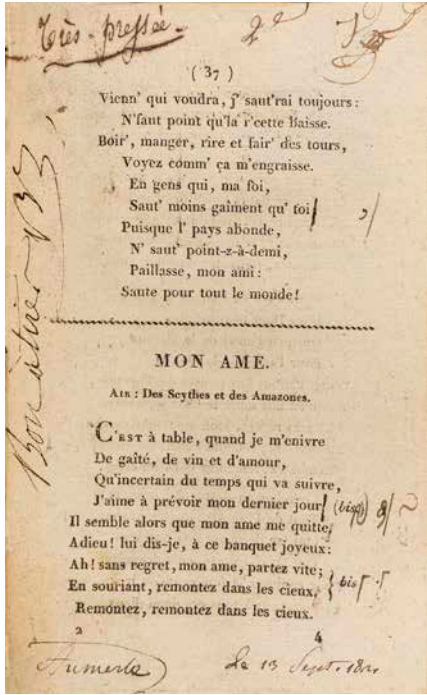 Très-pressée.
2e
( 37 )
Vienn' qui voudra, j' saut'rai toujours :
N'faut point qu'la r'cette baisse.
Boir', manger, rire et fair' des tours,
Voyez comm' ça m'engraisse.
En gens qui, ma foi,
Saut' moins gaîment qu' toi
Puisque l' pays abonde,
N' saut' point-z-à-demi,
Paillasse, mon ami :
Saute pour tout le monde !
MON AME.
AIR : Des Scythes et des Amazones.
C'EST à table, quand je m'enivre
De gaîté, de vin et d'amour,
Qu'incertain du temps qui va suivre,
J'aime à prévoir mon dernier jour (bis)
Il semble alors que mon ame me quitte,
Adieu! lui dis-je, à ce banquet joyeux :
Ah! sans regret, mon ame, partez vite ;
En souriant, remontez dans les cieux, } bis
Remontez, remontez dans les cieux.
2 4
Le 13 Sept.